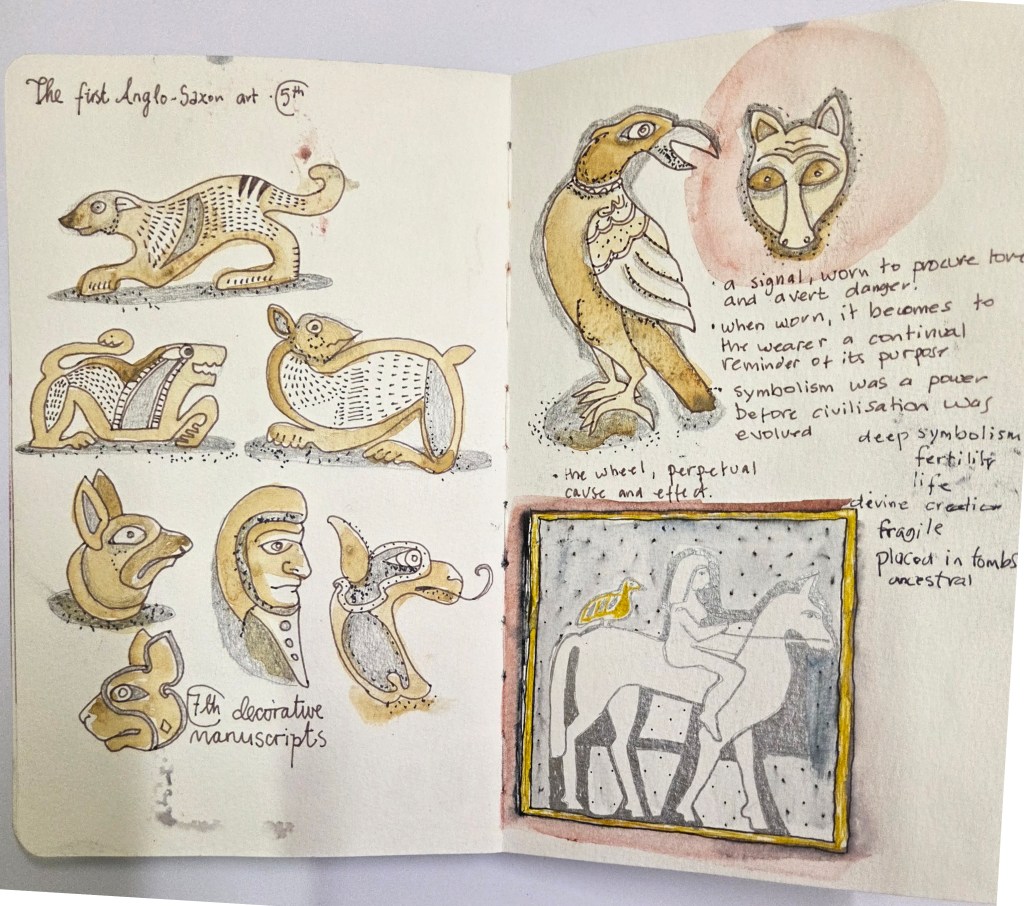 The first Anglo-Saxon art · 5th
7th decorative
manuscripts
· a signal, worn to procure love
and avert danger.
· when worn, it becomes to
the wearer a continual
reminder of its purpose
· symbolism was a power
before civilisation was
evolved
deep symbolism
fertility
life
devine creation
fragile
placed in tombs
ancestral
· the wheel, perpetual
cause and effect.